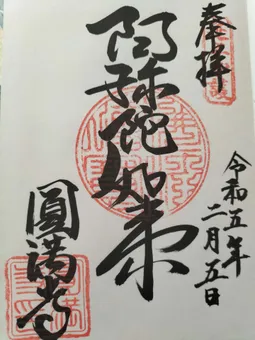 奉拝
令和五年
二月五日
阿弥陀如来
圓満寺